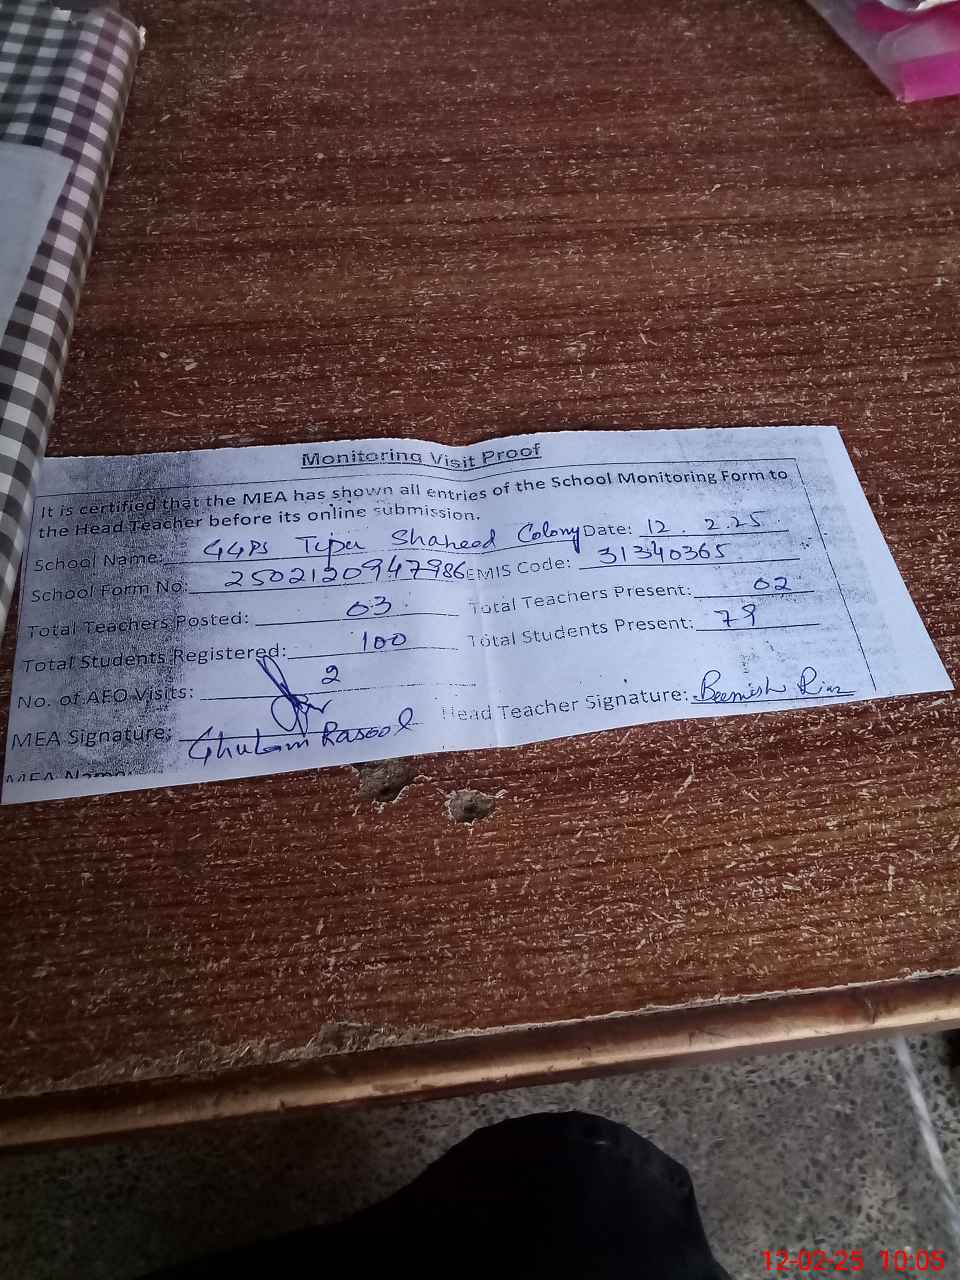 Monitoring Visit Proof
It is certified that the MEA has shown all entries of the School Monitoring Form to
the Head Teacher before its online submission.
School Name: GGPS Tipu Shaheed Colony Date: 12.2.25
School Form No: 2502120947986 EMIS Code: 31340365
Total Teachers Posted: 03 Total Teachers Present: 02
Total Students Registered: 100 Total Students Present: 79
No. of AEO Visits: 2
MEA Signature: Head Teacher Signature:
Ghulam Rasool
MEA Name:
12-02-25 10:05